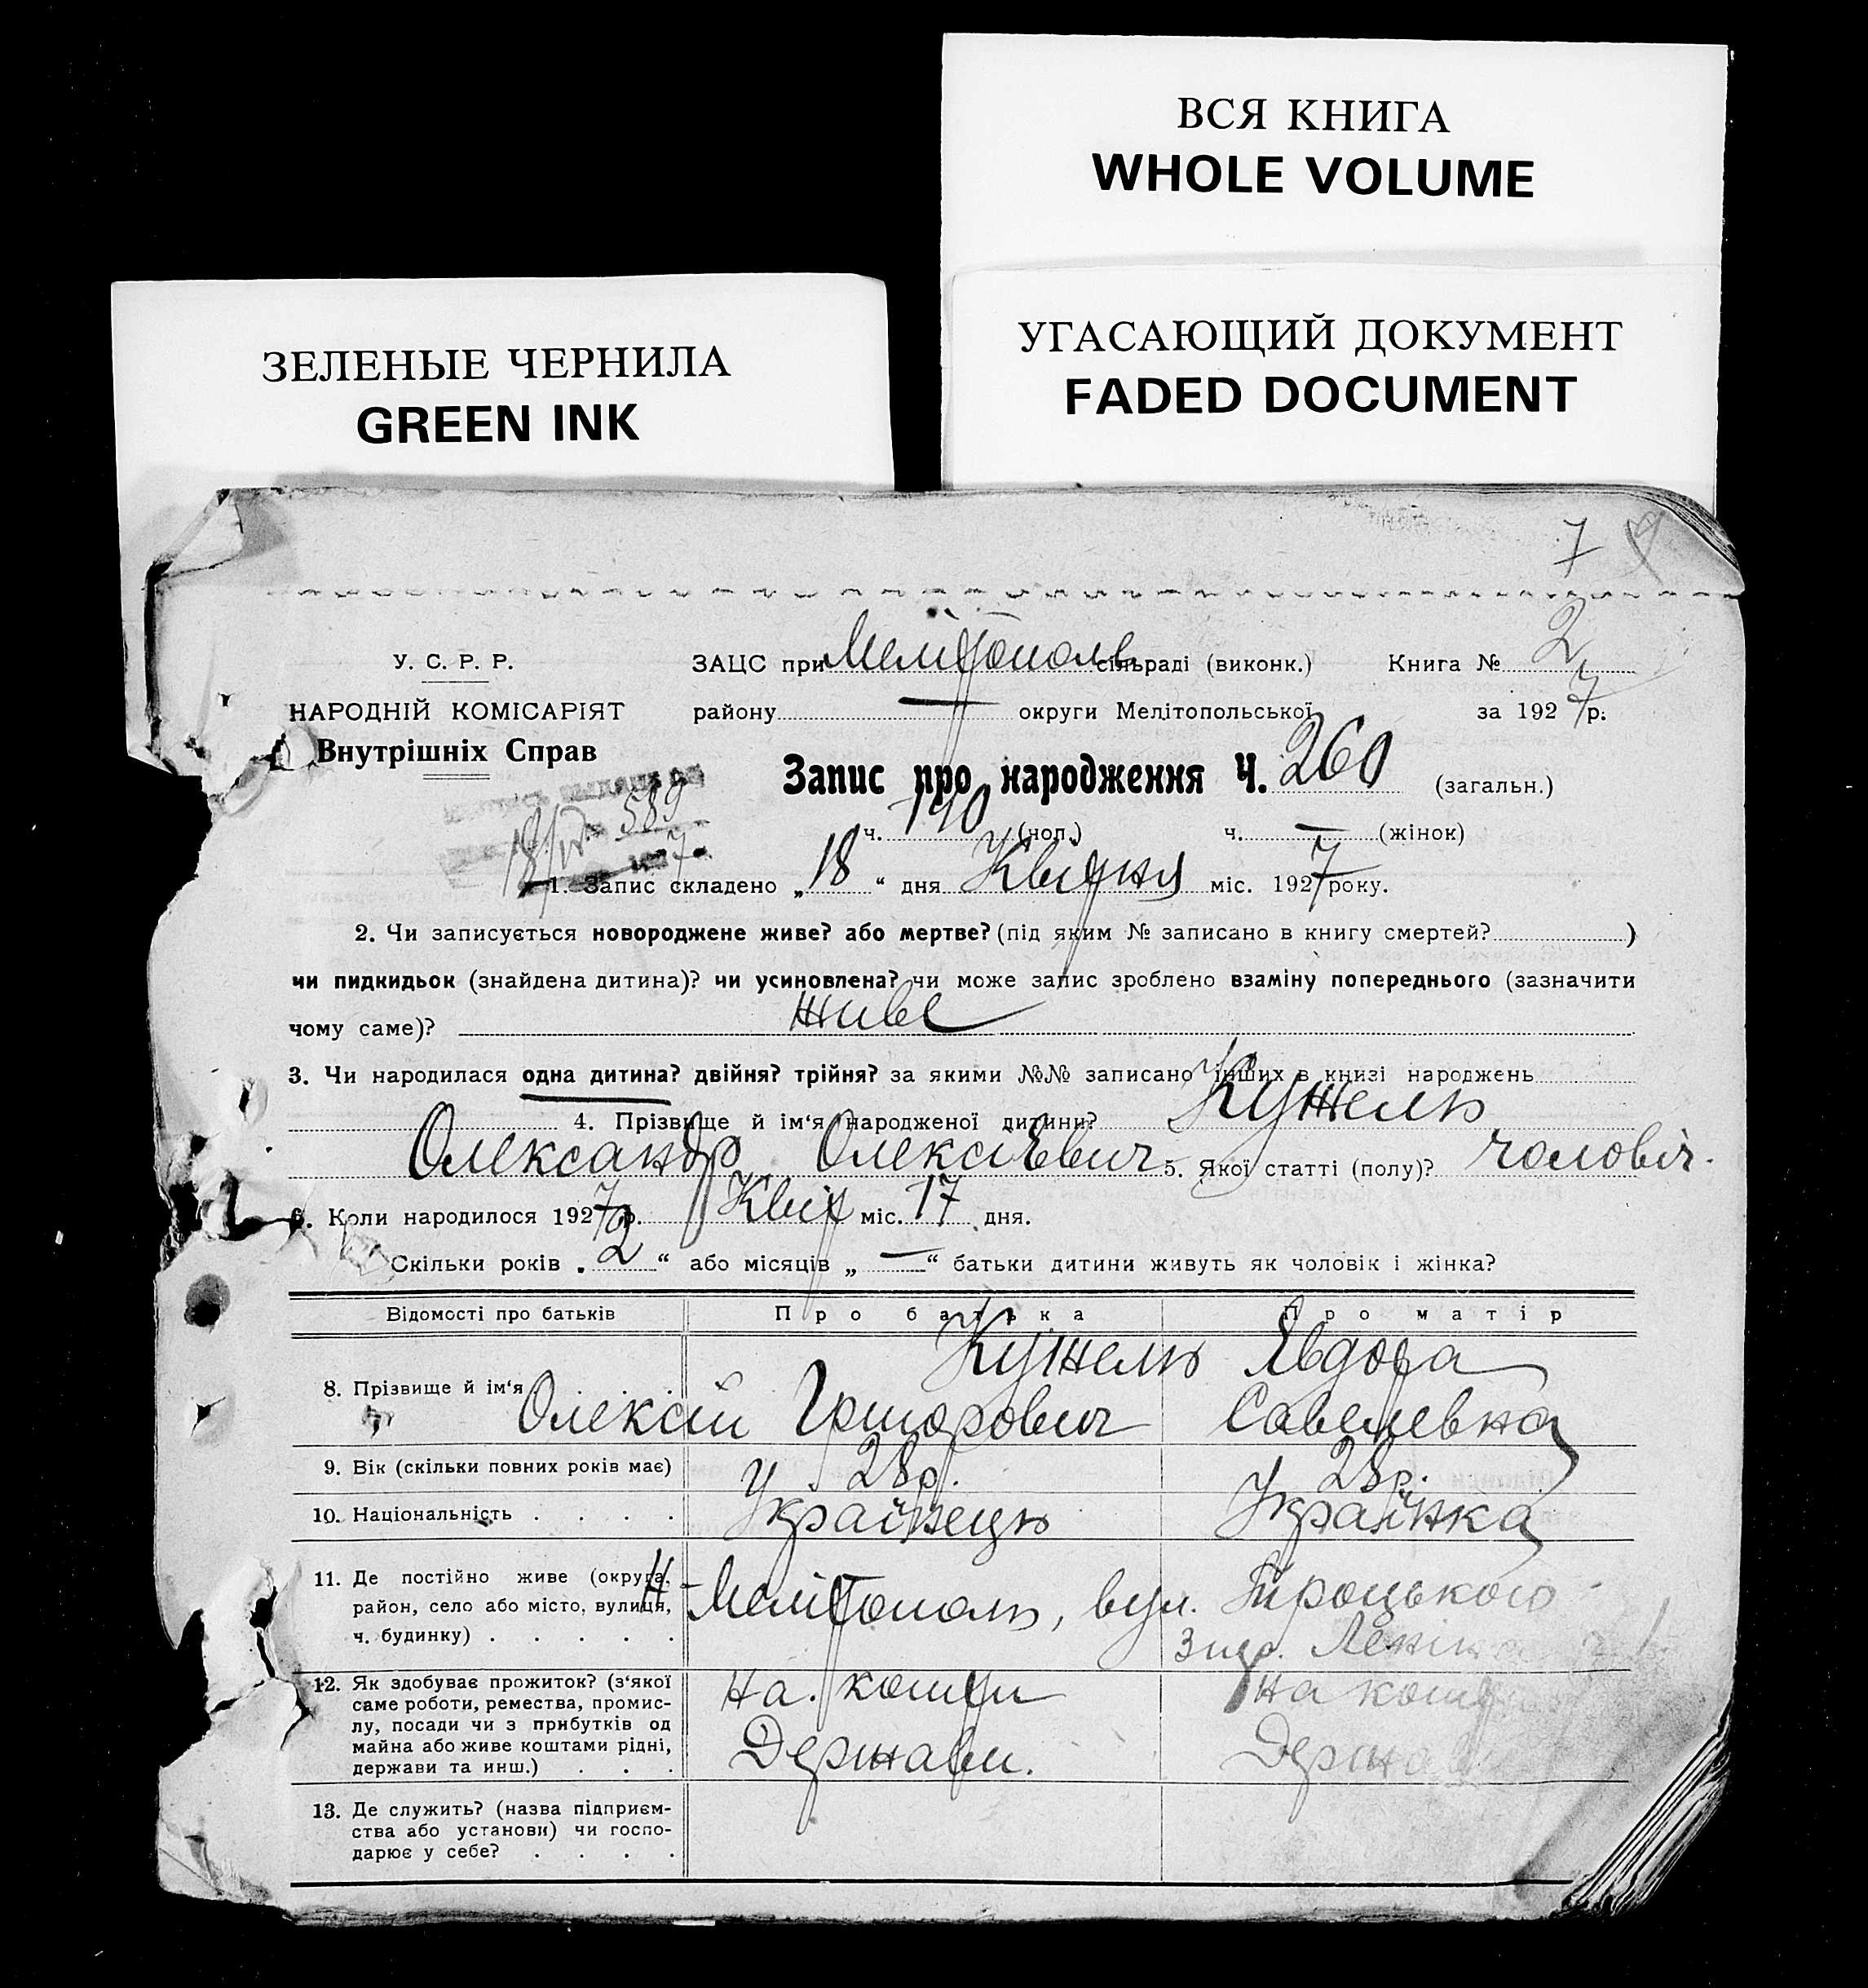 ВСЯ КНИГА
WHOLE VOLUME
ЗЕЛЕНЫЕ ЧЕРНИЛА
GREEN INK
УГАСАЮЩИЙ ДОКУМЕНТ
FADED DOCUMENT
7
У. С. Р. Р.
НАРОДНІЙ КОМІСАРІЯТ
Внутрішніх Справ
ЗАЦС при Мелітополь сільраді (виконк.) Книга № 2
району — округи Мелітопольської за 1927 р.
Запис про народження Ч. 260 (загальн.)
589
18/IV
ч. 140 (чол.) ч. — (жінок)
1. Запис складено „18“ дня Квітня міс. 1927 року.
2. Чи записується новороджене живе? або мертве? (під яким № записано в книгу смертей? )
чи пидкидьок (знайдена дитина)? чи усиновлена? чи може запис зроблено взаміну попереднього (зазначити
чому саме)? живе
3. Чи народилася одна дитина? двійня? трійня? за якими №№ записано інших в книзі народжень
4. Прізвище й ім‘я народженої дитини? Кужель
Олександр Олексієвич 5. Якої статті (полу)? чоловіч.
6. Коли народилося 1927 р. Квіт міс. 17 дня.
Скільки років „2“ або місяців „—“ батьки дитини живуть як чоловік і жінка?
Відомості про батьків Про батька Про матір
8. Прізвище й ім‘я Кужель Явдора
Олексій Григорович Савелевна
9. Вік (скільки повних років має) 28 р. 28 р.
10. Національність . . . . Українець Українка
11. Де постійно живе (округа,
район, село або місто, вулиця,
ч. будинку) . . . . .
Мелітополь, вул. Троцького
12. Як здобуває прожиток? (з‘якої
саме роботи, ремества, промис-
лу, посади чи з прибутків од
майна або живе коштами рідні,
держави та инш.) . . .
На кошти На кошти
Держави. Держави
13. Де служить? (назва підприєм-
ства або установи) чи госпо-
дарює у себе? . . . .